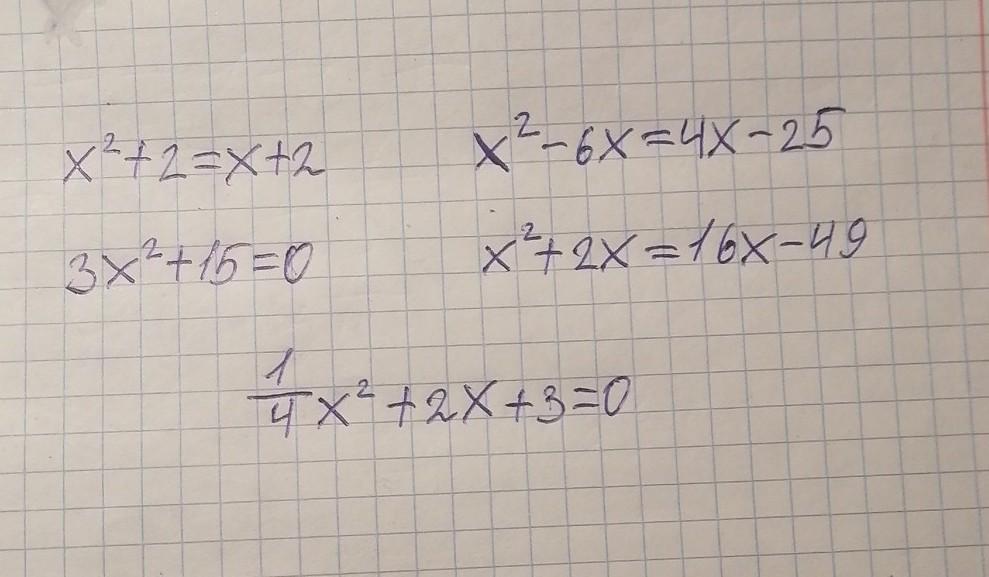 x²+2=x+2
x²-6x=4x-25
3x²+15=0
x²+2x=16x-49
1/4 x²+2x+3=0